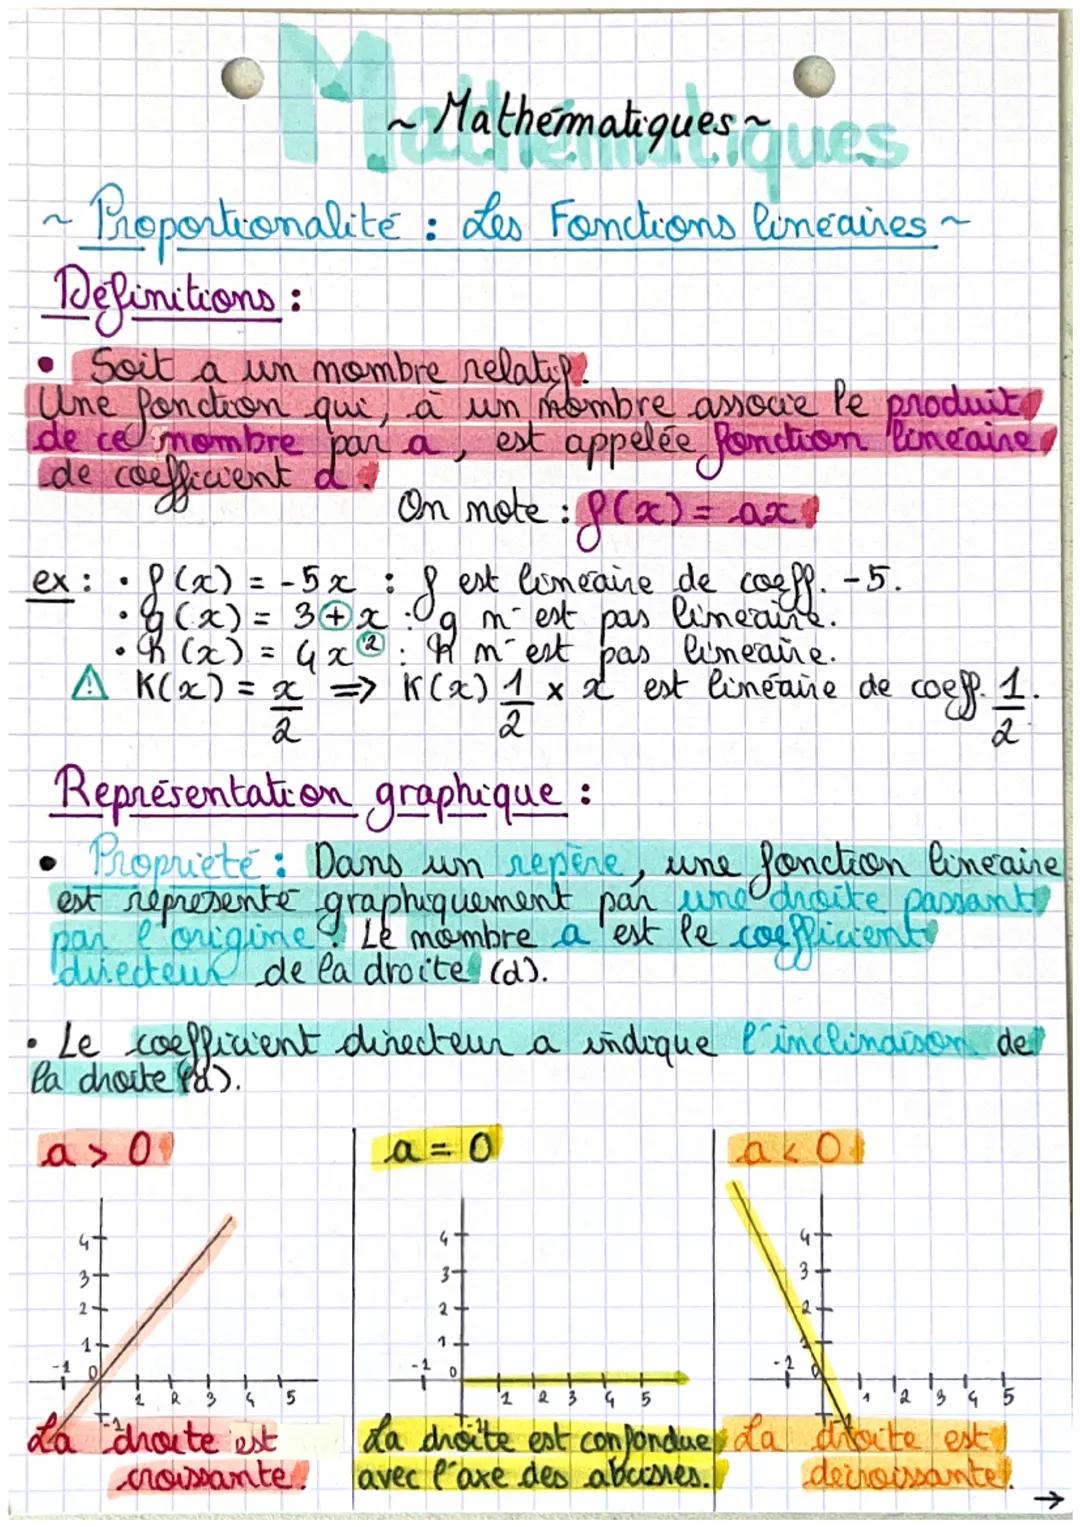 Mathématiques
~ Mathématiques ~
~ Proportionalité : Les Fonctions linéaires ~
Définitions :
• Soit a un nombre relatif.
Une fonction qui, à un nombre associe le produit
de ce nombre par a, est appelée fonction linéaire
de coefficient a.
On note : f(x) = ax
ex : • f(x) = -5x : f est linéaire de coeff. -5.
• g(x) = 3 + x : g n'est pas linéaire.
• h(x) = 4x² : h n'est pas linéaire.
⚠ K(x) = x/2 => K(x) 1/2 × x est linéaire de coeff. 1/2.
Représentation graphique :
• Propriété : Dans un repère, une fonction linéaire
est représenté graphiquement par une droite passant
par l'origine. Le nombre a est le coefficient
directeur de la droite (d).
• Le coefficient directeur a indique l'inclinaison de
la droite (d).
a > 0 a = 0 a < 0
4 4 4
3 3 3
2 2 2
1 1 1
-1 0 1 2 3 4 5 -1 0 1 2 3 4 5 -1 0 1 2 3 4 5
-1 -1 -1
La droite est croissante.
La droite est confondue
avec l'axe des abcisses.
La droite est
décroissante.
→